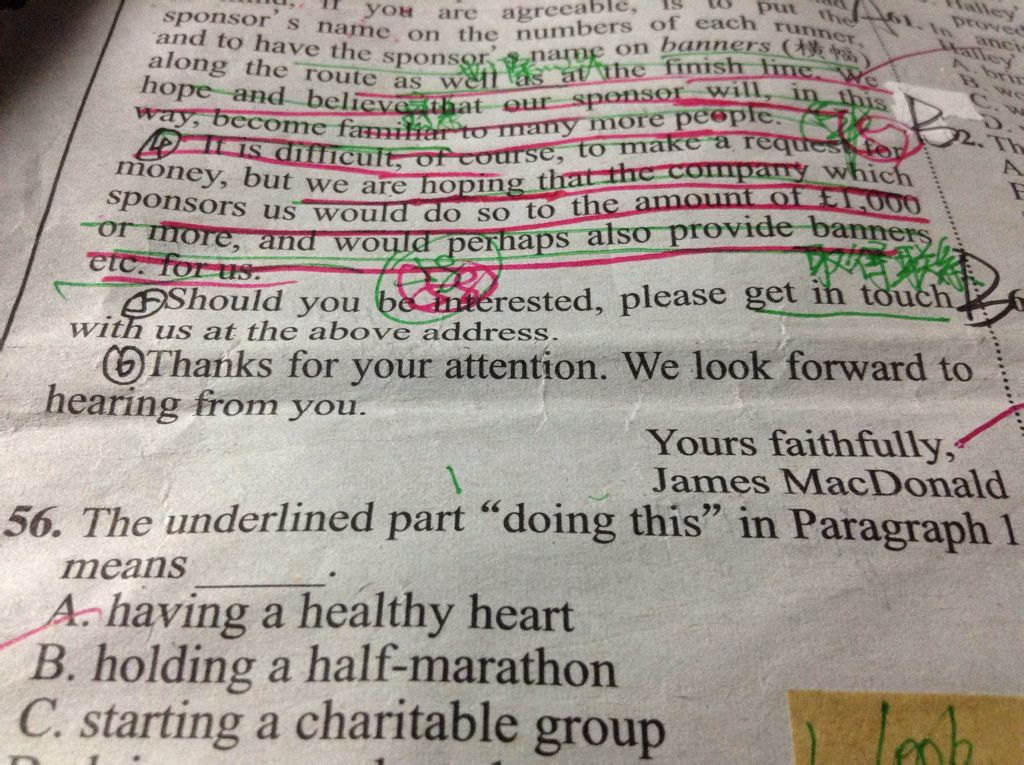 if you are agreeable, is to put the
sponsor's name on the numbers of each runner,
and to have the sponsor's name on banners (横幅)
along the route as well as at the finish line. We
hope and believe that our sponsor will, in this
way, become familiar to many more people.
④ It is difficult, of course, to make a request for
money, but we are hoping that the company which
sponsors us would do so to the amount of £1,000
or more, and would perhaps also provide banners
etc. for us.
取得联系
⑤ Should you be interested, please get in touch
with us at the above address.
⑥ Thanks for your attention. We look forward to
hearing from you.
Yours faithfully,
James MacDonald
56. The underlined part “doing this” in Paragraph 1
means ______.
A. having a healthy heart
B. holding a half-marathon
C. starting a charitable group
look
61.
In
Halley
A.
B.
C.
D.
62. Th
A.
B
B